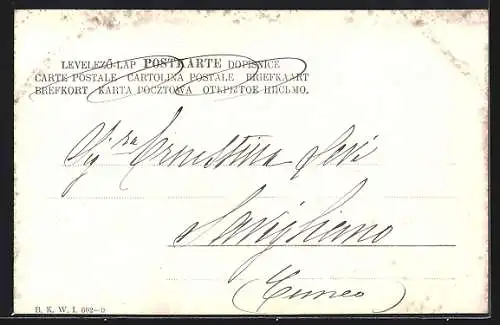 LEVELEZŐ-LAP POSTKARTE DOPISNICE
CARTE POSTALE CARTOLINA POSTALE BRIEFKAART
BREFKORT KARTA POCZTOWA ОТКРЫТОЕ ПИСЬМО.
Sig.ra Ernestina Levi
Savigliano
(Cuneo)
B. K. W. I. 692-9